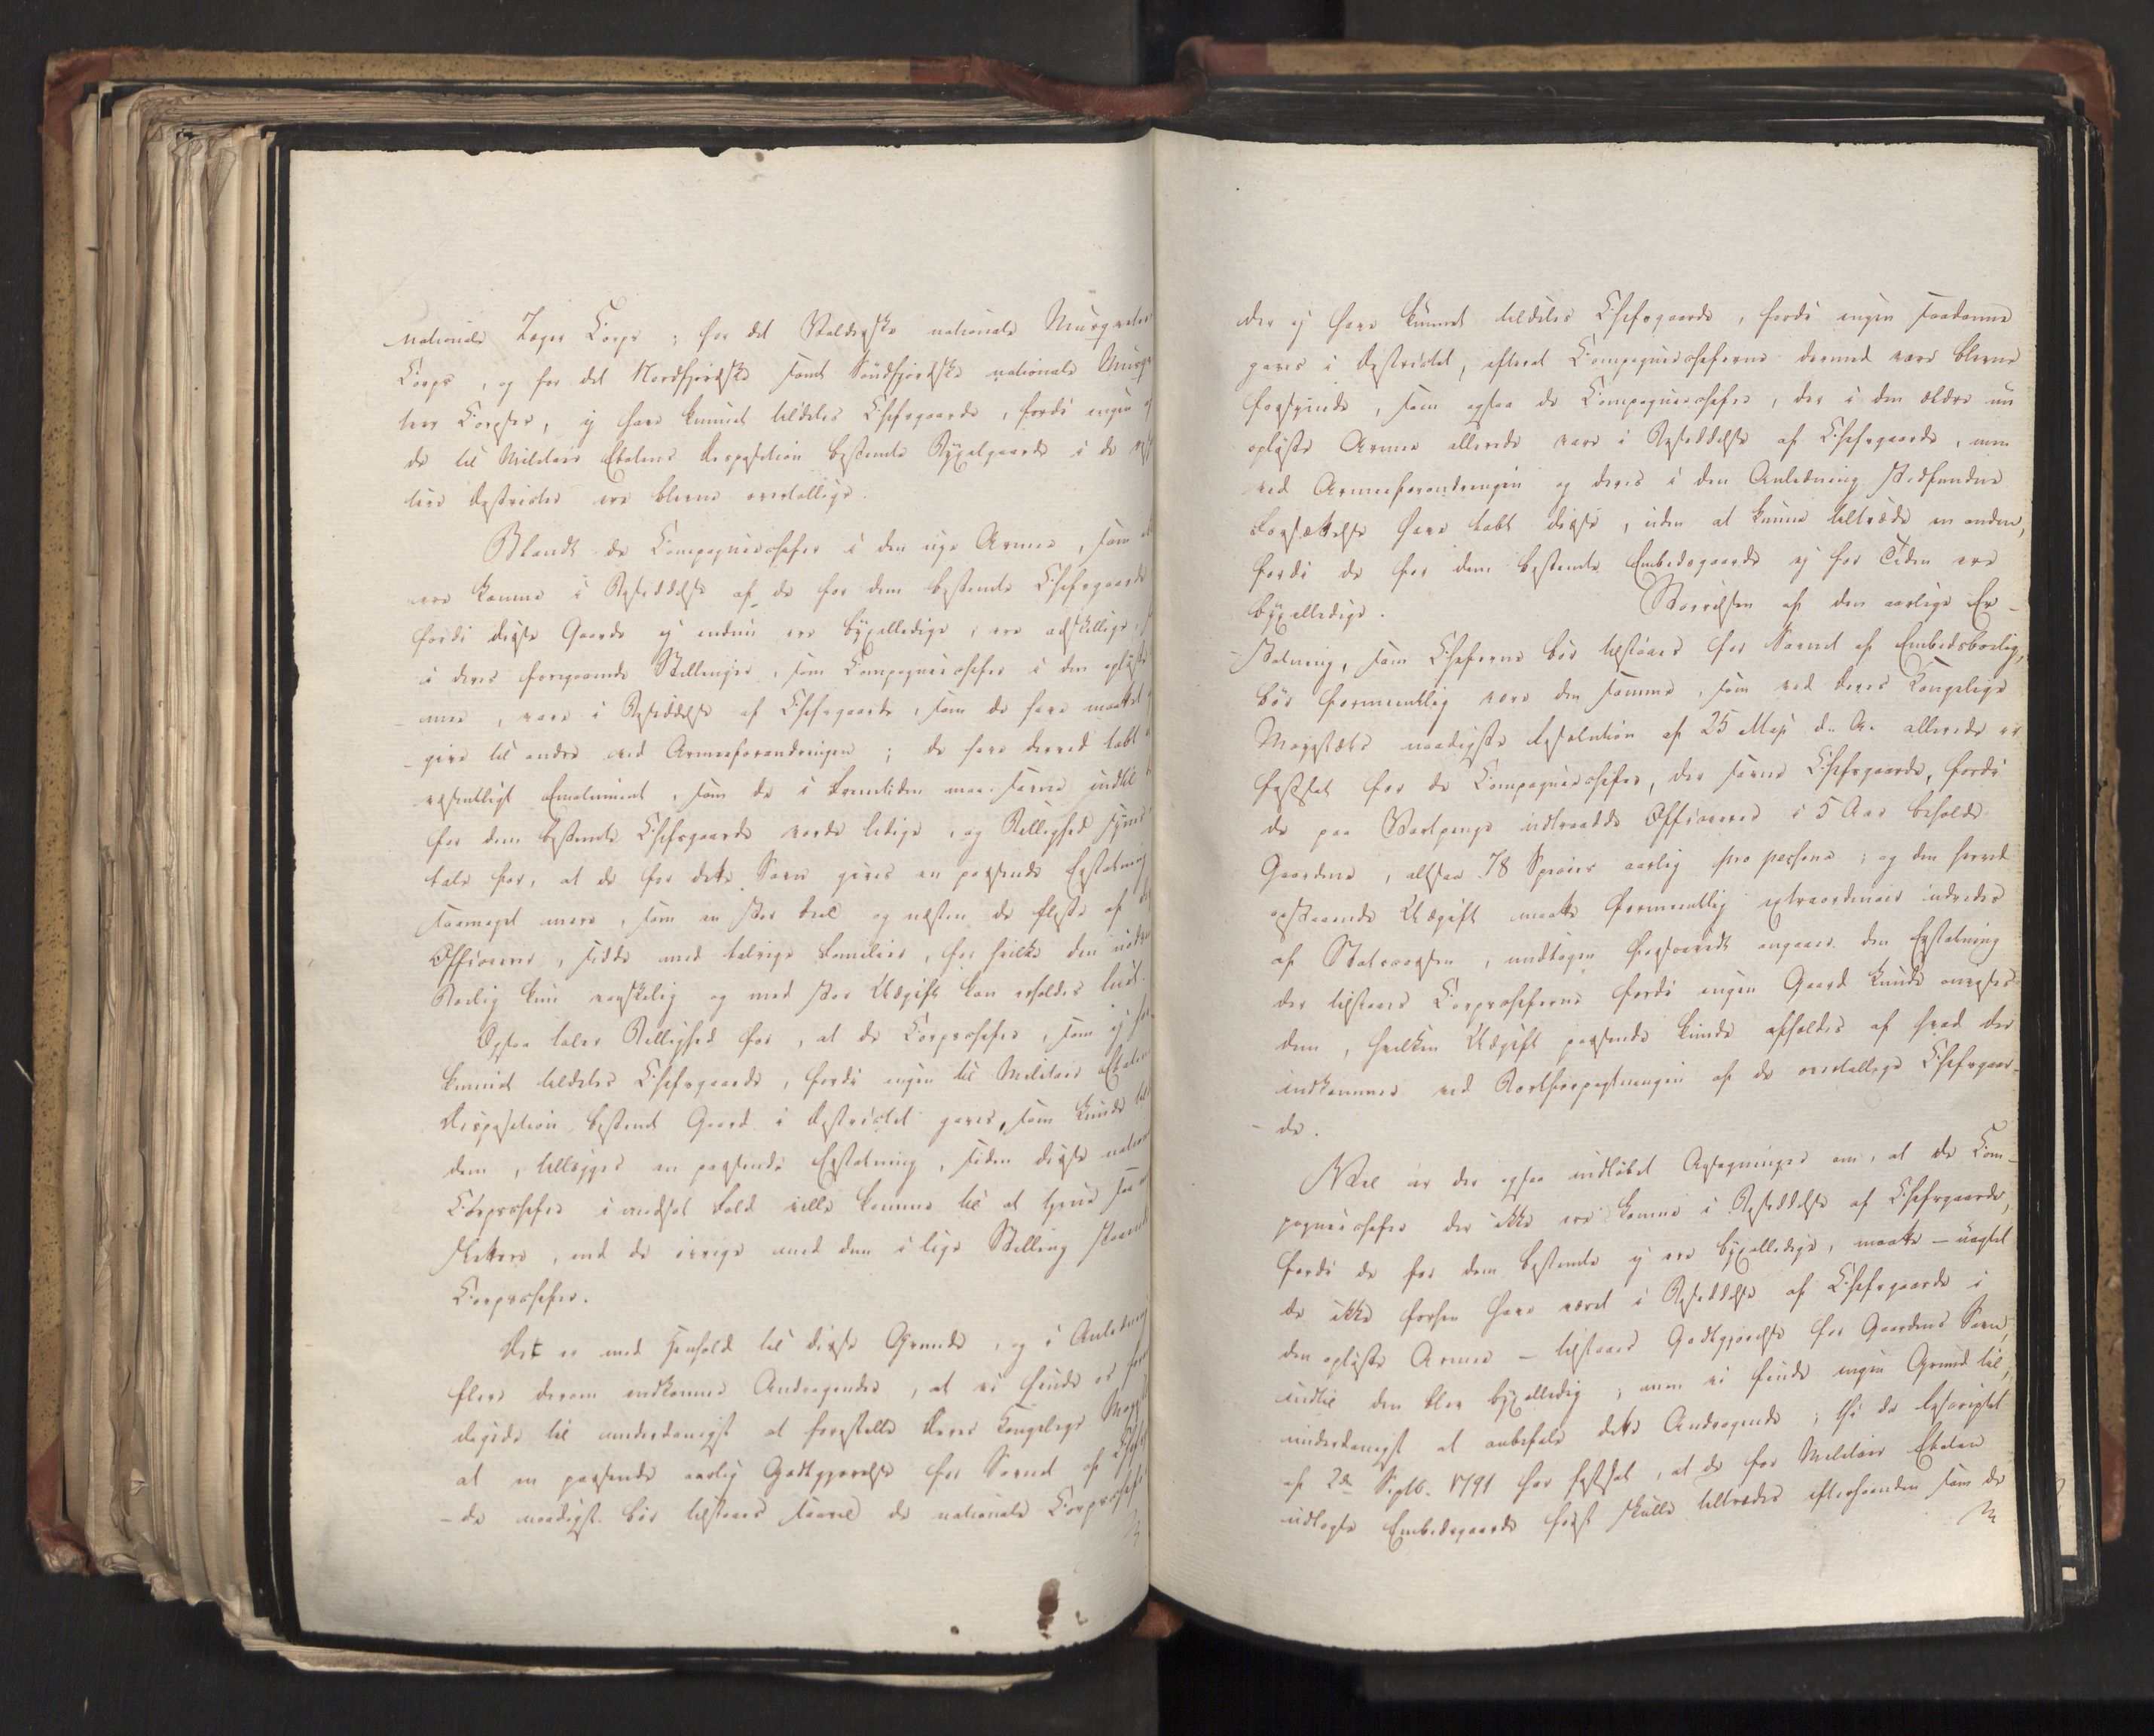 nationale Jæger Corps; for det Valderske nationale Musqueteer
Corps, og for det Nordfjordske samt Søndfjordske nationale Musqve
teer Corpser, ej have kunnet tildeles Chefsgaarde, fordi ingen af
de til Militair Etatens Disposition bestemte Byxelgaarde i de
Districter ere blevne overtallige.
Blandt de Compagniechefer i den nye Armee, som ei
ere komne i Besiddelse af de for dem bestemte Chefsgaarde
fordi disse Gaarde ej endnu ere byxelledige, ere adskillige,
i deres foregaaende Stillinger, som Compagniechefer i den opløste
mee, vare i Besiddelse af Chefsgaarde, som de have maattet
give til andre ved Armeeforandringen; de have derved tabt
væsentligt Emolument, som de i Fremtiden maae savne indtil
for dem bestemte Chefsgaarde vorde ledige, og Billighed synes
tale for, at de for dette Savn gives en passende Erstatning
saameget mere, som en stor Deel og næsten de fleste af
Officierer, sidde med talrige Familier, for hvilke den
Bolig kun vanskelig og med stor Udgift kan erholdes
Ogsaa taler Billighed for, at de Corpschefer, som ej
kunnet tildeles Chefsgaarde, fordi ingen til Militair Etatens
Disposition bestemt Gaard i Districtet gaves, som kunde
dem, tillægges en passende Erstatning, siden disse
Corpschefer i modsat Fald ville komme til at
slettere, end de øvrige med dem i lige Stilling staaende
Corpschefer.
Det er med Henhold til disse Grunde, og i Anledning
flere derom indkomne Andragender, at vi finde os
digede til underdanigst at forestille Deres Kongelige
at en passende aarlig Godtgjørelse for Savnet af
de naadigst bør tilstaaes saavel de nationale Corpschefer
der ej have kunnet tildeles Chefsgaarde, fordi ingen saadanne
gaves i Districtet, efterat Compagniecheferne dermed vare blevne
forsynede, som ogsaa de Compagniechefer, der i den ældre nu
opløste Armee allerede vare i Besiddelse af Chefsgaarde, men
ved Armeeforandringen og deres i den Anledning stedfundne
Forsættelse have tabt disse, uden at kunne tiltræde en anden,
fordi de for dem bestemte Embedsgaarde ej for Tiden ere
byxelledige. Størrelsen af den aarlige Er-
statning, som Cheferne bør tilstaaes for Savnet af Embedsbolig,
bør formeentlig være den samme, som ved Deres Kongelige
Majestæts naadigste Resolution af 25 Maj d. A. allerede er
fastsat for de Compagniechefer, der savne Chefsgaarde, fordi
de paa Vartpenge udtraadte Officierer i 5 Aar beholde
Gaardene, altsaa 78 Species aarlig pro persona; og den herved
opstaaende Udgift maatte formeentlig extraordinair udredes
af Statscassen, undtagen forsaavidt angaaer den Erstatning
der tilstaaes Corpscheferne fordi ingen Gaard kunde anvises
dem, hvilken Udgift passende kunde afholdes af hvad der
indkommer ved Bortforpagtningen af de overtallige Chefsgaar-
de.
Vel er der ogsaa indløbet Ansøgninger om, at de Com-
pagniechefer der ikke ere komne i Besiddelse af Chefsgaarde,
fordi de for dem bestemte ej ere byxelledige, maatte - uagtet
de ikke forhen have været i Besiddelse af Chefsgaarde i
den opløste Armee - tilstaaes Godtgjørelse for Gaardens Savn,
indtil den blev byxelledig; men vi finde ingen Grund til,
underdanigst at anbefale dette Andragende; thi da Rescriptet
af 2de Septb. 1791 har fastsat, at de for Militair Etaten
udlagte Embedsgaarde først skulle tiltrædes efterhaanden som de